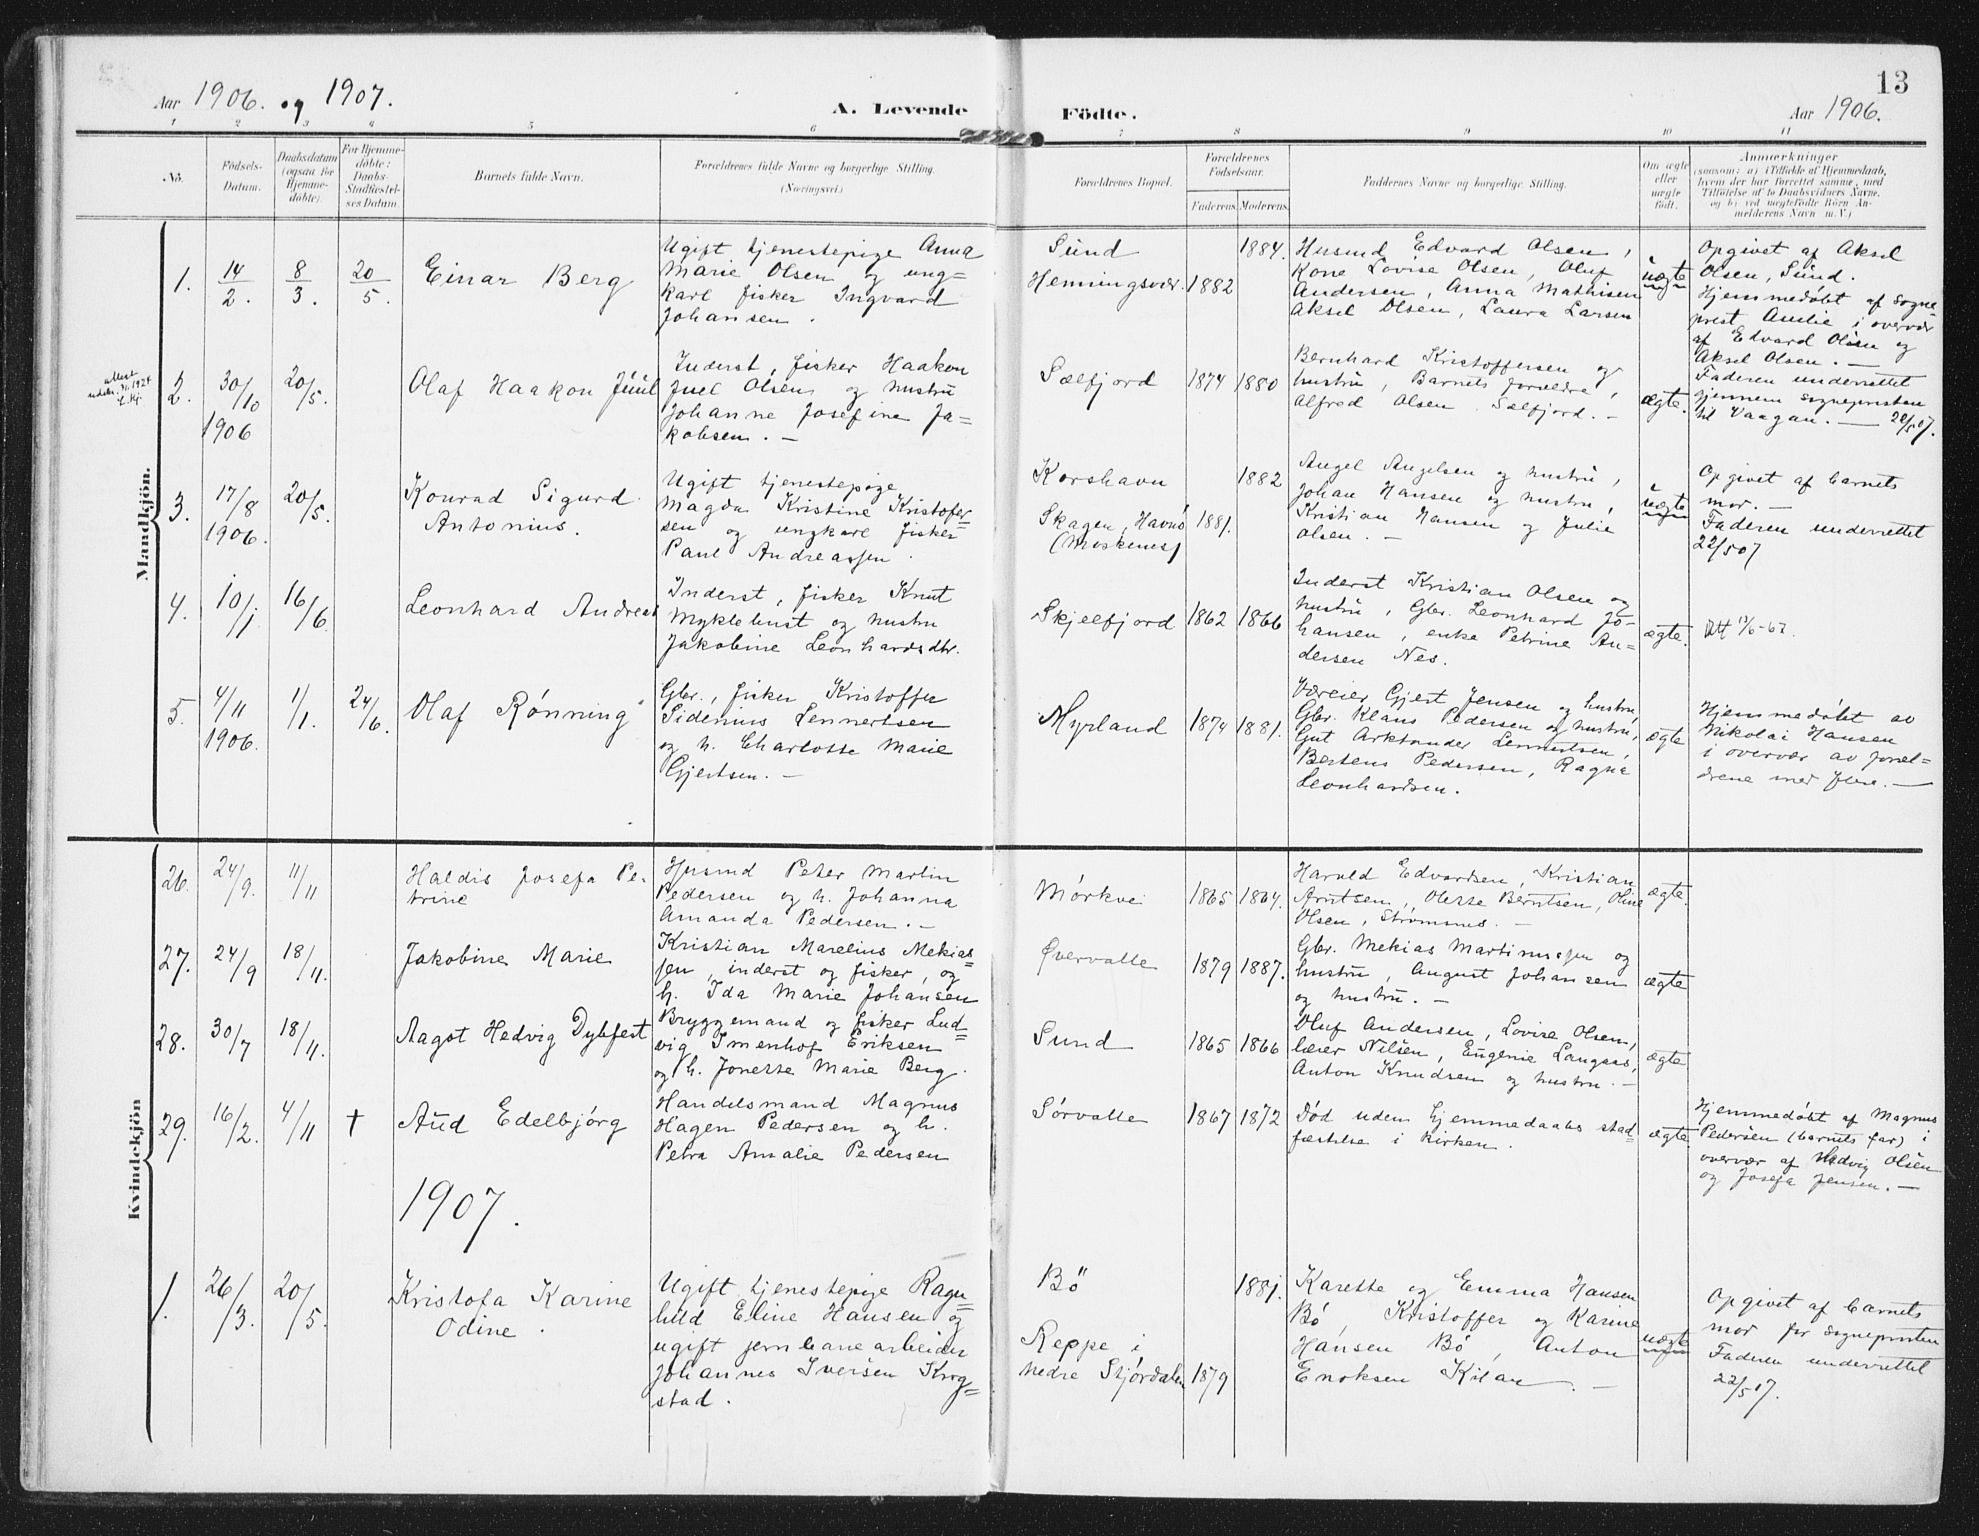 13
Aar 1906. og 1907.
A. Levende
Födte.
Aar 1906.
1 2 3 4 5 6 7 8 9 10 11
No.
Födsels-
Datum.
Daabsdatum
(ogsaa for
Hjemme-
döbte).
For Hjemme-
döbte:
Daabs-
Stadfæstel-
ses Datum.
Barnets fulde Navn.
Forældrenes fulde Navne og borgerlige Stilling.
(Næringsvei.)
Forældrenes Bopæl.
Forældrenes
Födselsaar.
Faderens. Moderens.
Faddernes Navne og borgerlige Stilling.
Om ægte
eller
uægte
födt.
Anmærkninger
(saasom: a) i Tilfælde af Hjemmedaab,
hvem der har forrettet samme, med
Tilföielse af to Daabsvidners Navne,
og b) ved uægtefödte Börn An-
melderens Navn m. V.)
Mandkjön.
1.
14/2.
8/3.
20/5.
Einar Berg
Ugift tjenestepige Anna
Marie Olsen og ung=
karl fisker Ingvard
Johansen.
Sund
Henningsvær.
1882
1884.
Husmd Edvard Olsen,
Kone Lovise Olsen, Oluf
Andersen, Anna Mathisen
Aksel Olsen, Laura Larsen
uægte
Opgivet af Aksel
Olsen, Sund.
Hjemmedøbt af sogne
prest Amlie i overvær
af Edvard Olsen og
Aksel Olsen. —
attest
1924
2.
30/10
1906
20/5.
Olaf Haakon Juul
Inderst, fisker Haakon
Juel Olsen og hustru
Johanne Josefine Ja=
kobsen. —
Sælfjord
1874
1880
Bernhard Kristoffersen og
hustru, Barnets forældre,
Alfred Olsen Sælfjord. —
ægte.
Faderen underrettet
gjennem sogneprsten
til Vaagan. — 22/5 07.
3.
17/8
1906.
20/5.
Konrad Sigurd
Antonius.
Ugift tjenestepige
Magda Kristine Kristofer=
sen og ungkarl fisker
Paul Andreassen.
Korshavn
Skagen, Havnø
(Moskenes)
1881.
1882
Angel Angelsen og hustru,
Johan Hansen og hustru,
Kristian Hansen og Julie
Olsen. —
uægte
Opgivet af barnets
mor. —
Faderen underrettet
22/5 07
4.
10/1
16/6.
Leonhard Andreas
Inderst, fisker Knut
Myklebust og hustru
Jakobine Leonhardsdtr.
Skjelfjord
1862
1866
Inderst Kristian Olsen og
hustru, Gbr. Leonhard Jo-
hansen, enke Petrine An=
dersen Nes.
ægte.
Att 13/6-67.
5.
4/11
1906.
1/1.
24/6.
Olaf Rønning
Gbr., fisker Kristoffer
Sidenius Lennertsen
og h. Charlotte Marie
Gjertsen. —
Myrland
1874
1881.
Væreier Gjert Jensen og hustru,
Gbr. Klaus Pedersen og hustru,
Gut Arktander Lennertsen,
Bertens Pedersen, Ragna
Leonhardsen.
ægte
Hjemmedøbt av
Nikolai Hansen
i overvær av forel=
drene med flere. —
Kvindekjön
26.
24/9.
11/11
Haldis Josefa Pe-
trine
Husmd Peter Martin
Pedersen og h. Johanna
Amanda Pedersen. —
Mørkve
1865
1864.
Harald Edvardsen, Kristian
Arntsen, Olette Berntsen, Oline
Olsen, Strømnes. —
ægte.
27.
24/9
18/11.
Jakobine Marie
Kristian Marelius Mekias=
sen, inderst og fisker, og
h. Ida Marie Johansen
Øvervatte
1879
1887.
Gbr. Mekias Martinussen og
hustru, August Johansen
og hustru. —
ægte
28.
30/7
18/11.
Aagot Hedvig Dybfest
Bryggemand og fisker Lud=
vig Imenhof Eriksen
og h. Jonette Marie Berg.
Sund
1865
1866
Oluf Andersen, Lovise Olsen,
lærer Nilsen, Eugenie Langaas,
Anton Knudsen og hustru. —
ægte
29.
16/2.
4/11
†
Aud Edelbjørg
Handelsmand Magnus
Hagen Pedersen og h.
Petra Amalie Pedersen
Sørvatte
1867
1872
Død uden hjemmedaabs stad=
fæstelse i kirken.
ægte
Hjemmedøbt af Magnus
Pedersen (barnets far) i
overvær af Hedvig Olsen
og Josefa Jensen. —
1907.
1.
26/3.
20/5.
Kristofa Karine
Odine.
Ugift tjenestepige Ragn=
hild Eline Hansen og
ugift jernbanearbeider
Johannes Iversen Krog=
stad.
Bø
Reppe i
nedre Stjørdalen
1879
1881.
Karette og Emma Hansen
Bø, Kristoffer og Karine
Hansen Bø, Anton
Enoksen Kilan. —
uægte
Opgivet af barnets
mor for sogneprsten
Faderen underrettet
22/5 07.